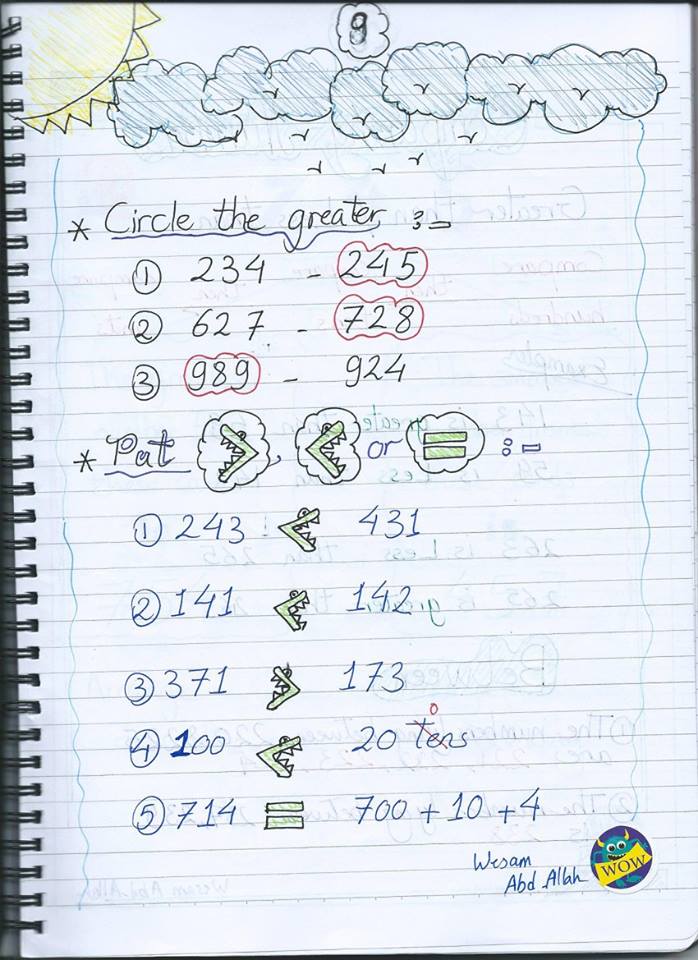 9
* Circle the greater :-
① 234 - 245
② 627 - 728
③ 989 - 924
* Pat >, < or = :-
① 243 < 431
② 141 < 142
③ 371 > 173
0
④ 100 < 20 Tens
⑤ 714 = 700 + 10 + 4
Wesam
Abd Allah
WOW